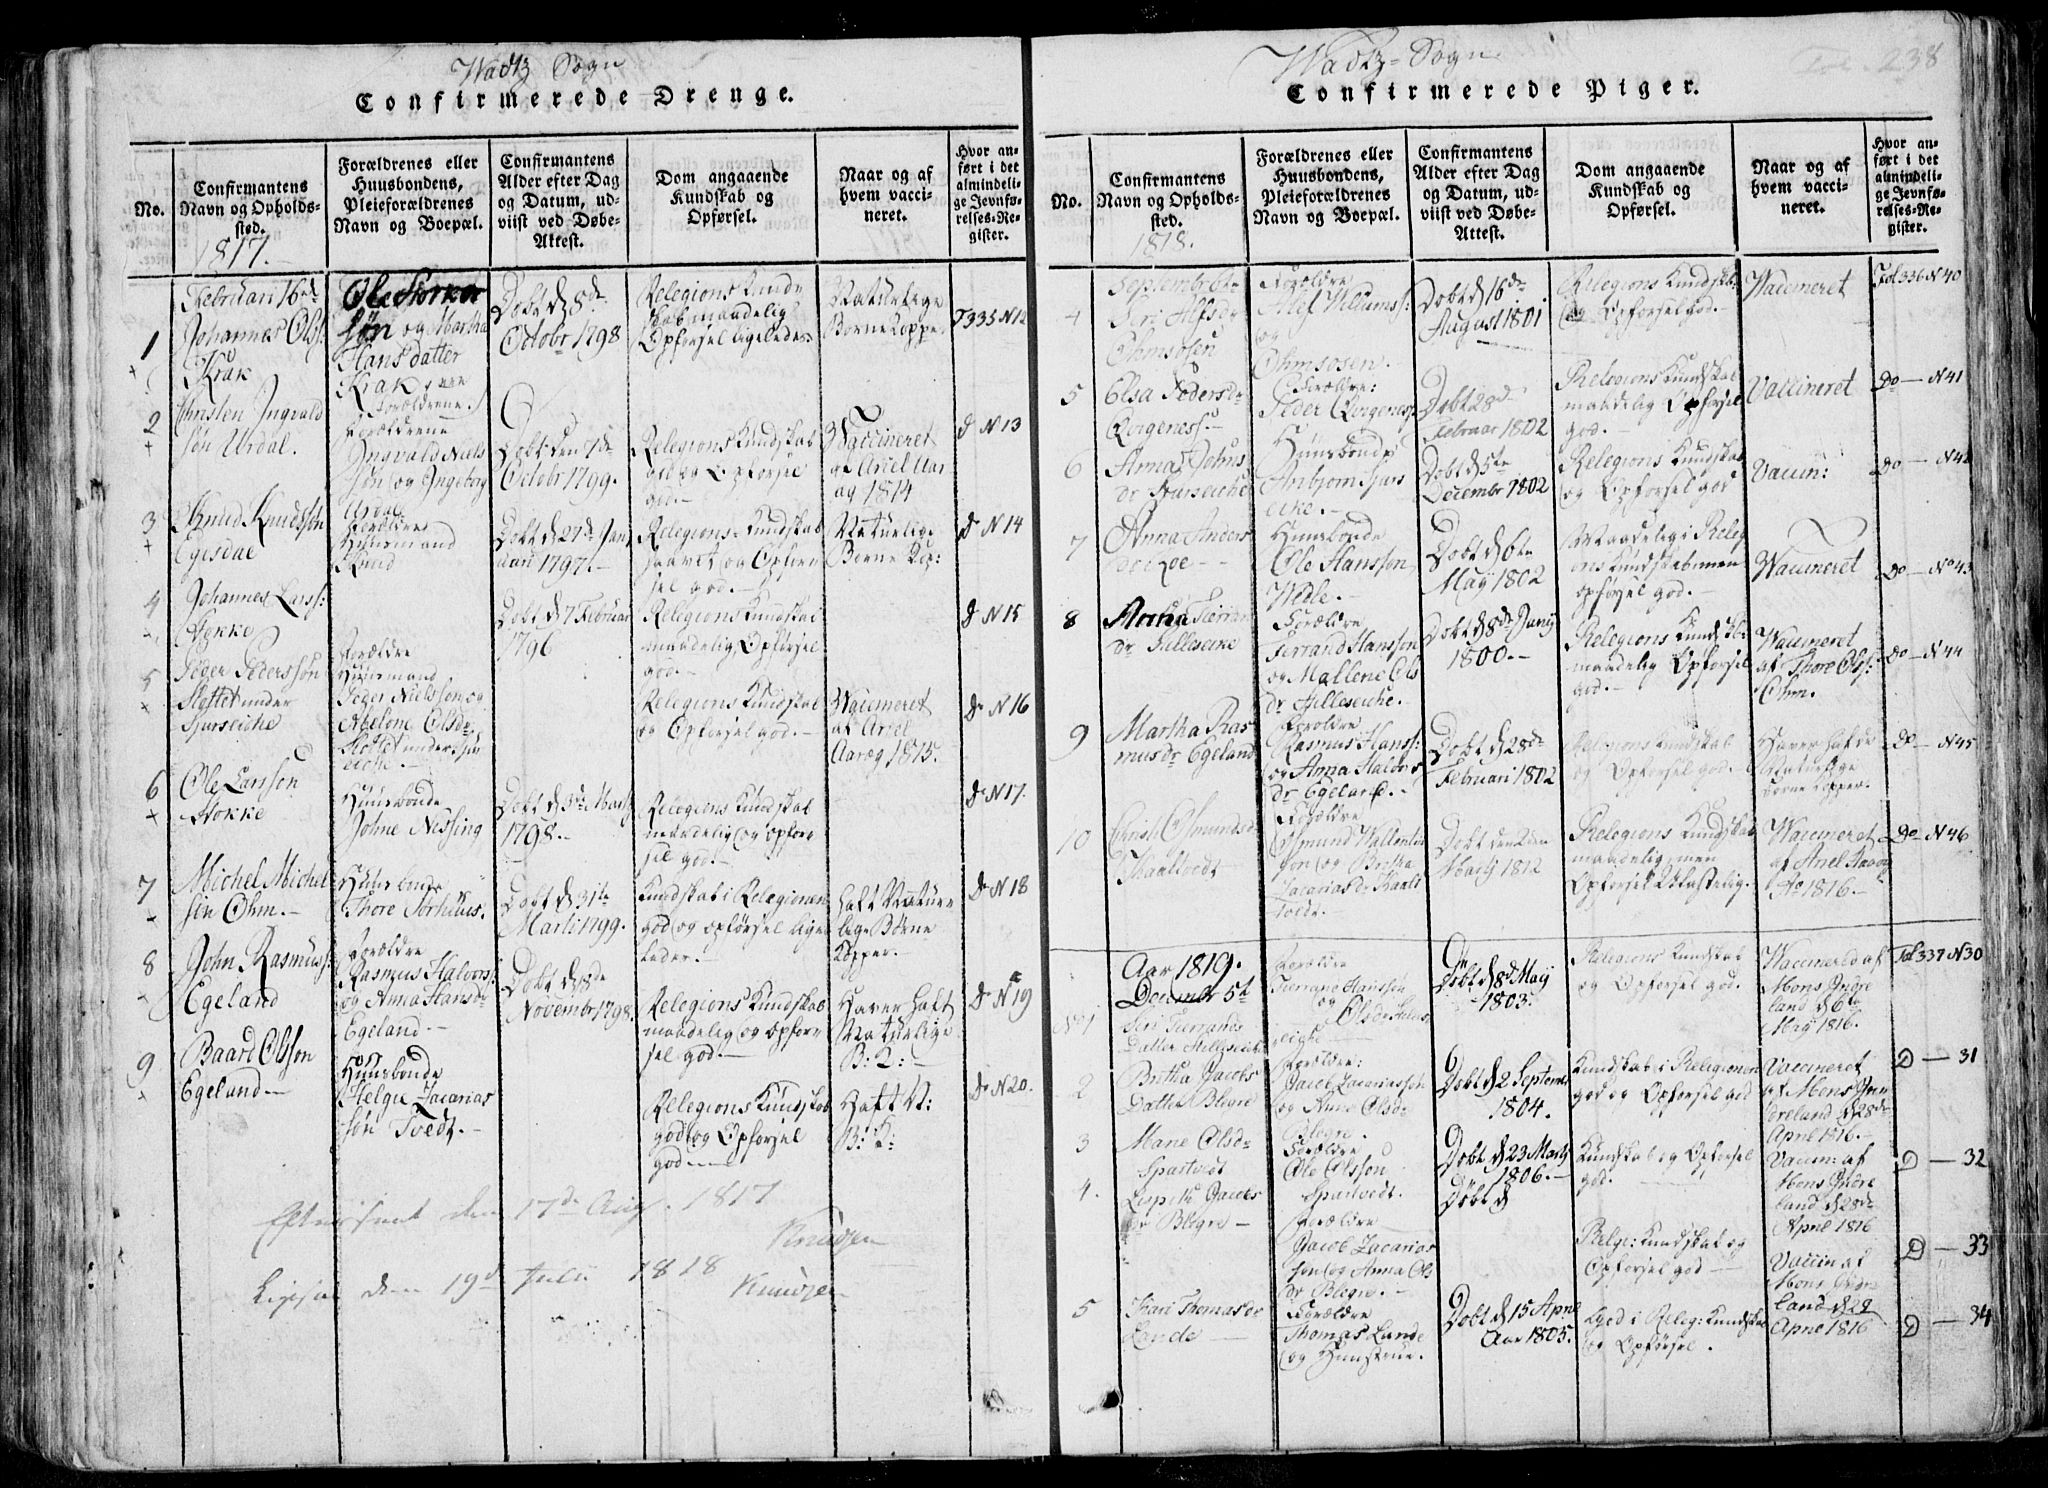 Wadtz Sogn
Confirmerede Drenge.
No.
Confirmantens
Navn og Opholds-
sted.
Forældrenes eller
Huusbondens,
Pleieforældrenes
Navn og Boepæl.
Confirmantens
Alder efter Dag
og Datum, ud-
viist ved Døbe-
Attest.
Dom angaaende
Kundskab og
Opførsel.
Naar og af
hvem vacci-
neret.
Hvor an-
ført i det
almindeli-
ge Jevnfø-
relses-Re-
gister.
1817.
Februari 16de
1
Johannes Olss:
Krak
søn og Martha
Hansdatter
Krak
Forældrene
Døbt d 8de
Octobr 1798
Relegions Kund
skab maadelig
Opførsel ligeledes
Naturlige
Børne Kopper
F 335 N 12
2
Christen Ingvald
søn Urdal.
Forældrene
Ingvald Niels
søn og Ingeborg
Urdal
Døbt den 7de
Octobr 1799.
Relegions Kundskab
god og Opførsel
god.
Waccineret
af Ariel Aar
ag 1814
d N 13
3
Knud Knudssøn
Egisdal
Forældre
Huusmand
Knud
Døbt d 27de Jan
uari 1797.
Relegions-Kundskab
og Opførs
sel god.
Naturlige
Børne Kop:
d N 14
4
Johannes Larss:
Støkke
Døbt d 7 Februar
1796
Relegions Kundskab
maadelig, Opførsel
god.
d N 15
5
Peder Pederssøn
Slottet under
Sjurseiche
Forældre
Huusmand
Peder Nielssøn og
Abelone Olsdr
Slottet under Sjur
eiche.
Relegions Kundskab
og Opførsel god.
Waccineret
af Ariel
Aarog 1815.
do N 16
6
Ole Larsson
Stokke
Huusbonde
Johne Nissing
Døbt d 3de Martz
1798.
Relegions Kundskab
maadelig og opfør
sel god.
do N 17.
7
Michel Michel
søn Ohm.
Huusbonde
Thore Torhuus.
Døbt d 31te
Marti 1799.
Kundskab i Relegionen
god og opførsel lige
ledes.
Haft Natur
lige Børne
Kopper.
do N 18
8
John Rasmuss:
Egeland
Forældre
Rasmus Halvors:
og Anna Hansdr
Egeland.
Døbt d 18de
November 1798.
Relegions Kundskab
maadelig og opfør
sel god.
Haver haft
Naturlige
B: K:
do N 19
9
Baard Olsson
Egeland
Huusbonde
Helge Zacarias
søn Tvedt.
Relegions Kundskab
god og Opførsel
god
Haft N:
B: K:
do N 20.
Efterseet den 17de Aug. 1817
Knudzen
Ligesaa den 19de Julii 1818 Knudzen
Wadtz-Sogn
238
Confirmerede Piger.
No.
Confirmantens
Navn og Opholds-
sted.
Forældrenes eller
Huusbondens,
Pleieforældrenes
Navn og Boepæl.
Confirmantens
Alder efter Dag
og Datum, ud-
viist ved Døbe-
Attest.
Dom angaaende
Kundskab og
Opførsel.
Naar og af
hvem vacci-
neret.
Hvor an-
ført i det
almindeli-
ge Jevnfø-
relses-Re-
gister.
1818.
4
Siri Alfsdr
Ohmsosen
Forældre
Alf Villumss:
og
Ohmsosen.
Døbt d 16de
August 1801
Relegions Kundskab
og Opførsel god.
Waccineret
Fol 336 N 40
5
Elsa Pedersdr
Qvigeness.
Forældre:
Peder Qvigeness
Døbt 28de
Februar 1802
Relegions Kundskab
maadelig Opførsel
god.
Vaccineret
Do — N 41
6
Anna Johns
dr Sjurseiche
Huusbonde
Anbjorn Sjurs
eiche.
Døbt d 5te
Decembr 1802
Relegions Kundskab
og Opførsel god
Vaccin:
Do — N 42
7
Anna Anders
Huusbonde
Ole Hansson
Døbt d 6te
May 1802
Maadelig i Releg
ions Kundskab men
opførsel god.
Waccineret
Do — No 43
8
dr Hilleseiche
Forældre
Ferrand Hansson
og Mallene Ols
dr Hilleseiche.
Døbt d 8de Junij
1800.
Relegions Kundskab
maadelig Opførsel
god.
Waccineret
af Thore Olss:
Ohm.
Do — N 44
9
Martha Ras
musdr Egeland
Forældre
Rasmus Hanss:
og Anna Halvors
dr Egeland.
Døbt d 28de
Februari 1802
Relegions Kundskab
og Opførsel god.
Haver hafde
Naturlige
Børne Kopper.
Do — N 45
10
Christi Osmundsd
Kaaltvedt
Forældre
Osmund Wallentin
søn og Britha
Zacariasdr Kaalt
tvedt.
Døbt den 2den
Martij 1812
Relegions Kundskab
maadelig, men
Opførsel Ulastelig.
Waccineret
af Ariel Aarog
Ao 1816.
Do — N 46
Aar 1819.
December 5te
No 1
Siri Ferrands
Datter Hilleseiche
Forældre
Ferrand Hansson
og
Døbt d 8de Maij
1803.
Relegions Kundskab
og Opførsel god.
Waccinerld af
Mons Indre
land d 6te
Maij 1816.
Fol 337 N 30
2
Britha Jacobs
Datter Blegre
Forældre:
Jacob Zacariassøn
og Anne Olsd
Blegre.
Døbt d 2 Septemb
1804.
Kundskab i Relegionen
god og Opførsel god
Vaccineret
af Mons In
dreland d 28de
April 1816.
D — 31
3
Mane Olsdr
Spartvedt
Forældre
Ole Olsson
Spartvedt.
Døbt d 23 Martz
1806.
Kundskab og Opførsel
god.
Vaccin: af
Mons Indre
land d 28de
April 1816
D — 32
4.
Lispeth Jacobs
dr Blegre
Forældre
Jacob Zacarias
søn og Anna Ols
dr Blegre.
Døbt d
Relge: Kundskab og
Opførsel god
Vaccin af
Mons Indre
land d 28
April 1816
D — 33
5
Kari Thomasdr
Lande
Forældre
Thomas Lande
og Hunstrue.
Døbt d 15 April
Aar 1805.
god i Releg: Kundskab
og Opførsel.
D — 34